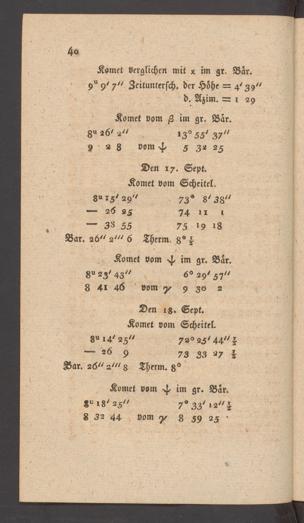 40
Komet verglichen mit x im gr. Bär.
9ᵘ 9′ 7″ Zeituntersch. der Höhe = 4′ 39″
d. Azim. = 1 29
Komet vom β im gr. Bär.
8ᵘ 26′ 2″ 13° 55′ 37″
9 2 8 vom ψ 5 32 25
Den 17. Sept.
Komet vom Scheitel.
8ᵘ 15′ 29″ 73° 8′ 38″
— 26 25 74 11 1
— 38 55 75 19 18
Bar. 26″ 2‴ 6 Therm. 8° ½
Komet vom ψ im gr. Bär.
8ᵘ 23′ 43″ 6° 29′ 57″
8 41 46 vom γ 9 30 2
Den 18. Sept.
Komet vom Scheitel.
8ᵘ 14′ 25″ 72° 25′ 44″ ½
— 26 9 73 33 27 ½
Bar. 26″ 2‴ 8 Therm. 8°
Komet vom ψ im gr. Bär.
8ᵘ 18′ 25″ 7° 33′ 12″ ½
8 32 44 vom γ 8 59 25